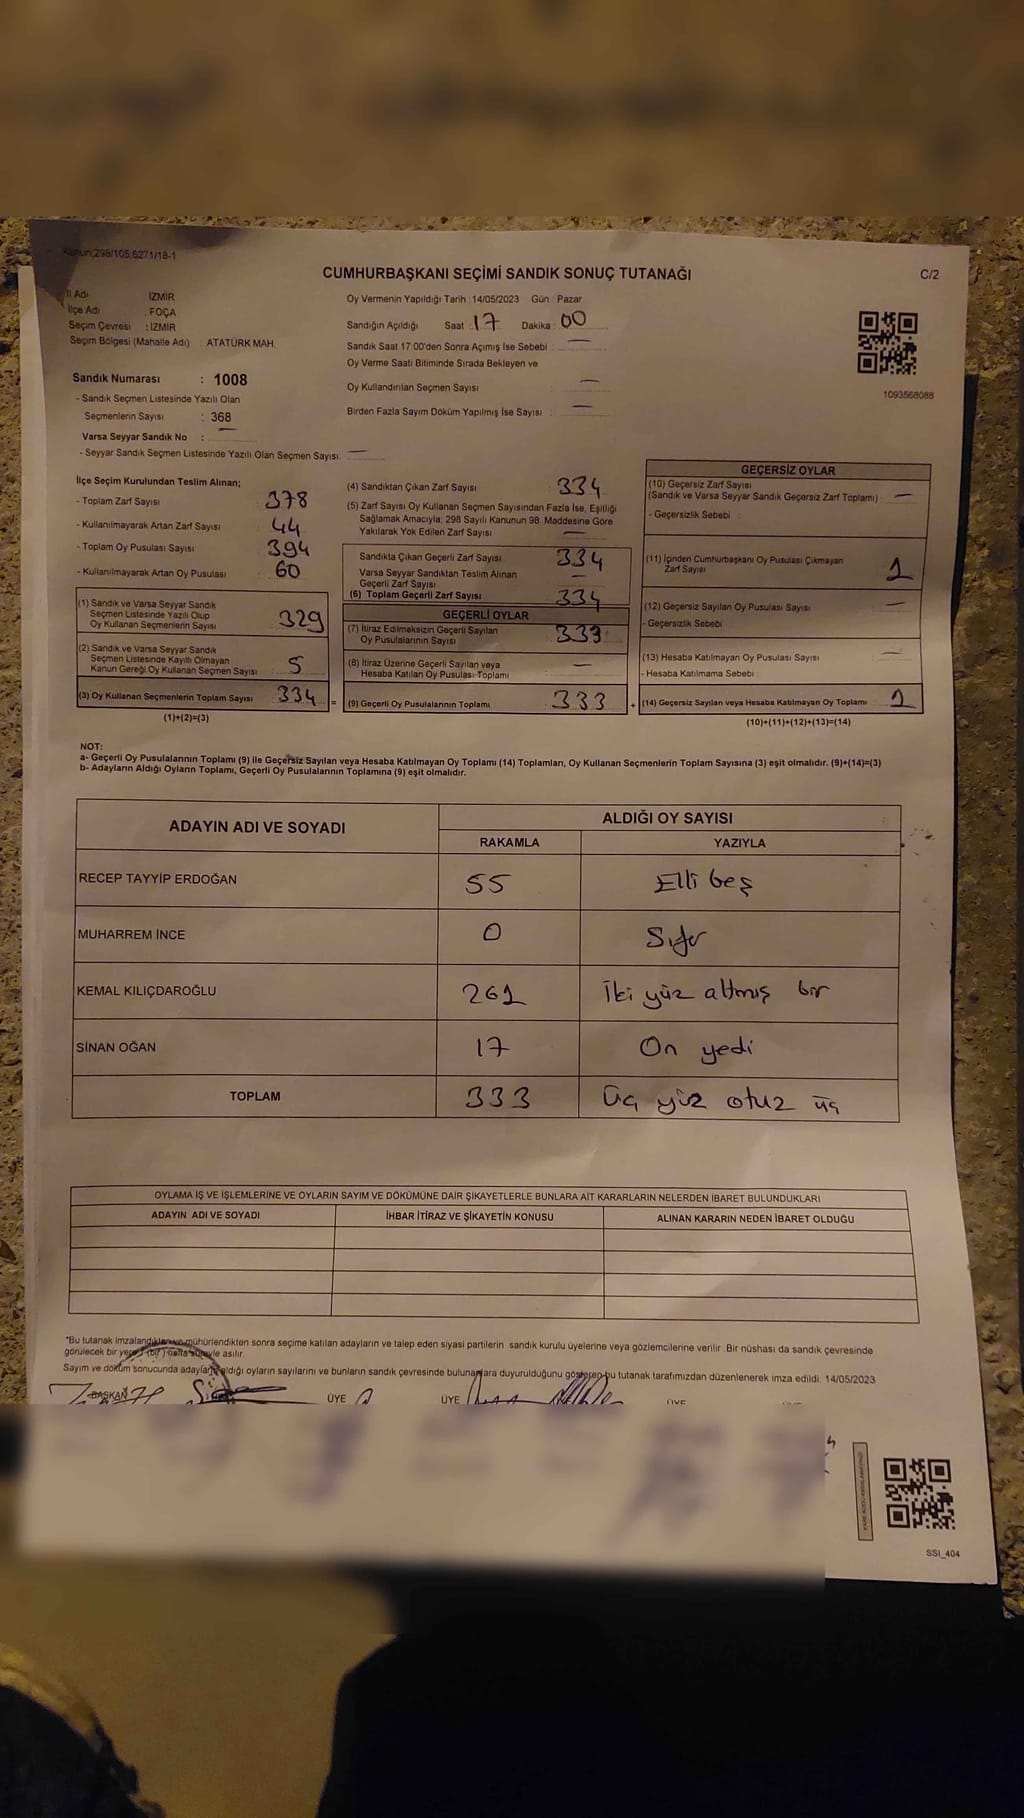 Kanun:298/105,6271/18-1
CUMHURBAŞKANI SEÇİMİ SANDIK SONUÇ TUTANAĞI
C/2
İl Adı : İZMİR
İlçe Adı : FOÇA
Seçim Çevresi : İZMİR
Seçim Bölgesi (Mahalle Adı) : ATATÜRK MAH.
Sandık Numarası : 1008
- Sandık Seçmen Listesinde Yazılı Olan
Seçmenlerin Sayısı : 368
Varsa Seyyar Sandık No : —
- Seyyar Sandık Seçmen Listesinde Yazılı Olan Seçmen Sayısı: —
Oy Vermenin Yapıldığı Tarih : 14/05/2023 Gün : Pazar
Sandığın Açıldığı Saat : 17 Dakika : 00
Sandık Saat 17:00'den Sonra Açımış İse Sebebi : —
Oy Verme Saati Bitiminde Sırada Bekleyen ve
Oy Kullandırılan Seçmen Sayısı : —
Birden Fazla Sayım Döküm Yapılmış İse Sayısı : —
1093568088
İlçe Seçim Kurulundan Teslim Alınan;
- Toplam Zarf Sayısı : 378
- Kullanılmayarak Artan Zarf Sayısı : 44
- Toplam Oy Pusulası Sayısı : 394
- Kullanılmayarak Artan Oy Pusulası : 60
(1) Sandık ve Varsa Seyyar Sandık
Seçmen Listesinde Yazılı Olup
Oy Kullanan Seçmenlerin Sayısı : 329
(2) Sandık ve Varsa Seyyar Sandık
Seçmen Listesinde Kayıtlı Olmayan
Kanun Gereği Oy Kullanan Seçmen Sayısı : 5
(3) Oy Kullanan Seçmenlerin Toplam Sayısı : 334
(1)+(2)=(3)
(4) Sandıktan Çıkan Zarf Sayısı : 334
(5) Zarf Sayısı Oy Kullanan Seçmen Sayısından Fazla İse, Eşitliği
Sağlamak Amacıyla; 298 Sayılı Kanunun 98. Maddesine Göre
Yakılarak Yok Edilen Zarf Sayısı : —
Sandıkta Çıkan Geçerli Zarf Sayısı : 334
Varsa Seyyar Sandıktan Teslim Alınan
Geçerli Zarf Sayısı : —
(6) Toplam Geçerli Zarf Sayısı : 334
GEÇERLİ OYLAR
(7) İtiraz Edilmeksizin Geçerli Sayılan
Oy Pusulalarının Sayısı : 333
(8) İtiraz Üzerine Geçerli Sayılan veya
Hesaba Katılan Oy Pusulası Toplamı : —
= (9) Geçerli Oy Pusulalarının Toplamı : 333
GEÇERSİZ OYLAR
(10) Geçersiz Zarf Sayısı
(Sandık ve Varsa Seyyar Sandık Geçersiz Zarf Toplamı) : —
- Geçersizlik Sebebi :
(11) İçinden Cumhurbaşkanı Oy Pusulası Çıkmayan
Zarf Sayısı : 1
(12) Geçersiz Sayılan Oy Pusulası Sayısı : —
- Geçersizlik Sebebi :
(13) Hesaba Katılmayan Oy Pusulası Sayısı : —
- Hesaba Katılmama Sebebi :
+ (14) Geçersiz Sayılan veya Hesaba Katılmayan Oy Toplamı : 1
(10)+(11)+(12)+(13)=(14)
NOT:
a- Geçerli Oy Pusulalarının Toplamı (9) ile Geçersiz Sayılan veya Hesaba Katılmayan Oy Toplamı (14) Toplamları, Oy Kullanan Seçmenlerin Toplam Sayısına (3) eşit olmalıdır. (9)+(14)=(3)
b- Adayların Aldığı Oyların Toplamı, Geçerli Oy Pusulalarının Toplamına (9) eşit olmalıdır.
ADAYIN ADI VE SOYADI ALDIĞI OY SAYISI
RAKAMLA YAZIYLA
RECEP TAYYİP ERDOĞAN 55 Elli beş
MUHARREM İNCE 0 Sıfır
KEMAL KILIÇDAROĞLU 261 İki yüz altmış bir
SİNAN OĞAN 17 On yedi
TOPLAM 333 Üç yüz otuz üç
OYLAMA İŞ VE İŞLEMLERİNE VE OYLARIN SAYIM VE DÖKÜMÜNE DAİR ŞİKAYETLERLE BUNLARA AİT KARARLARIN NELERDEN İBARET BULUNDUKLARI
ADAYIN ADI VE SOYADI İHBAR İTİRAZ VE ŞİKAYETİN KONUSU ALINAN KARARIN NEDEN İBARET OLDUĞU
*Bu tutanak imzalandıktan ve mühürlendikten sonra seçime katılan adayların ve talep eden siyasi partilerin sandık kurulu üyelerine veya gözlemcilerine verilir. Bir nüshası da sandık çevresinde
görülecek bir yere 1 (bir) hafta süreyle asılır.
Sayım ve döküm sonucunda adayların aldığı oyların sayılarını ve bunların sandık çevresinde bulunanlara duyurulduğunu gösteren bu tutanak tarafımızdan düzenlenerek imza edildi. 14/05/2023
BAŞKAN ÜYE ÜYE
SSI_404